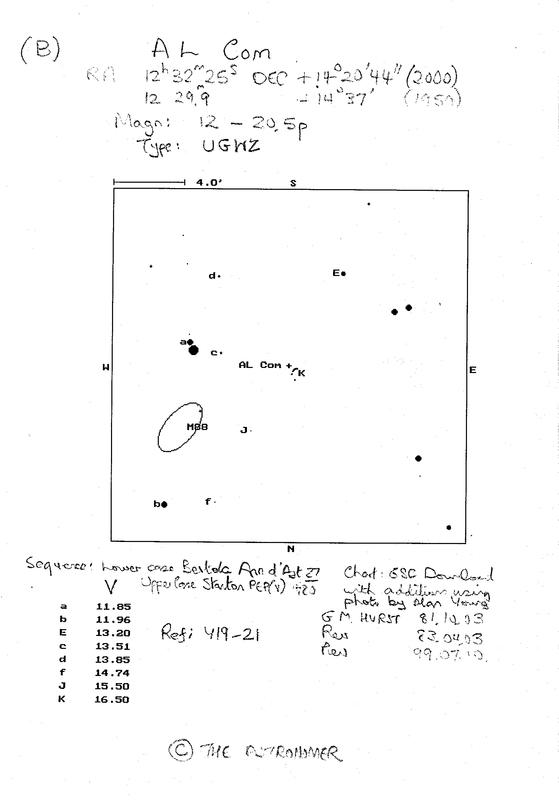 (B) AL Com
RA 12h32m25s DEC +14°20'44" (2000)
12 29.9m - 14°37' (1950)
Magn: 12 - 20.5p
Type: UGWZ
4.0' S
d
E
a
c
AL Com +
K
W
E
M88
J
b
f
N
Sequence: Lower case Bertola Ann d'Ast 27
Upper case Stanton PEP(V)
Chart: GSC Download
with additions using
photo by Alan Young
V
a 11.85
b 11.96
E 13.20
c 13.51
d 13.85
f 14.74
J 15.50
K 16.50
Ref: 419-21
G M. HURST 81.10.03
Rev 83.04.03
Rev 99.07.10.
© THE ASTRONOMER